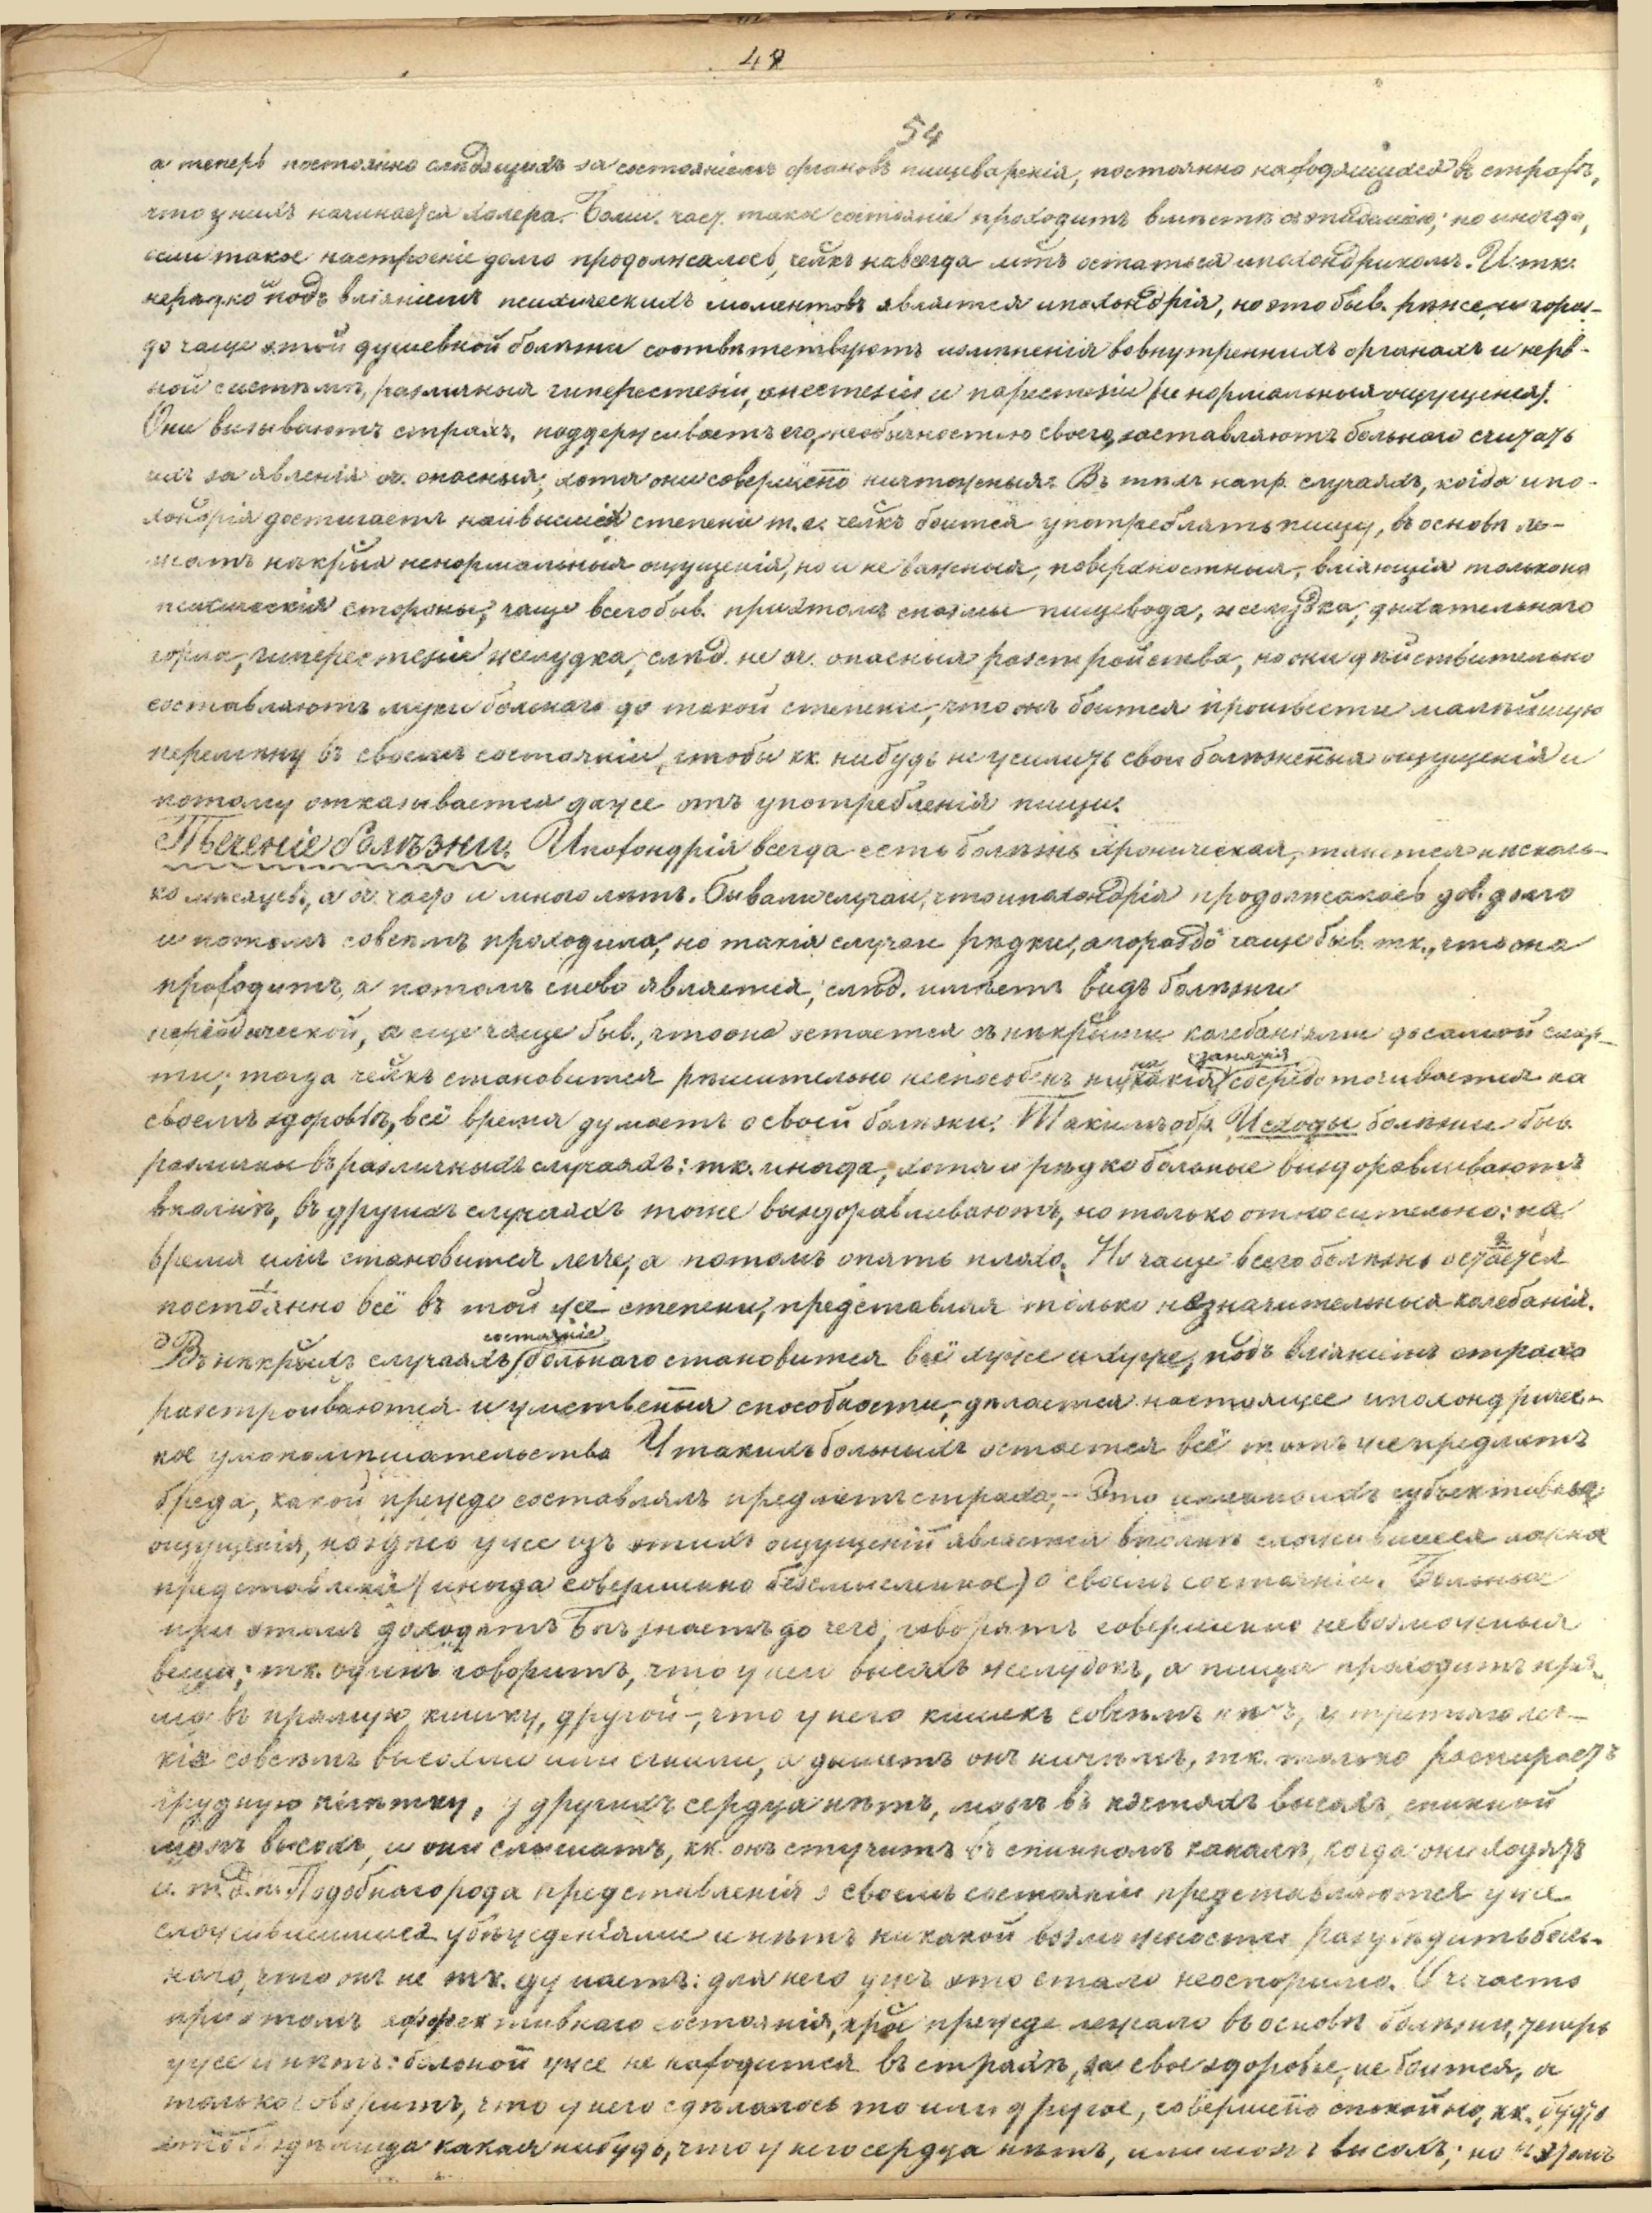 48
54
а теперь постоянно слѣдящихъ за состояніемъ органовъ пищеваренія, постоянно находящихся въ страхѣ,
что у нихъ начинается холера. Больш. част. такое состояніе проходитъ вмѣстѣ съ эпидеміею; но иногда,
если такое настроеніе долго продолжалось, челкъ навсегда мтъ остаться ипохондрикомъ. И тк.
нерѣдко подъ вліяніемъ психическихъ моментовъ является ипохондрія, но это быв. рѣже, и гораз-
до чаще этой душевной болѣзни соотвѣтствуютъ измѣненія во внутреннихъ органахъ и нерв-
ной системѣ, различныя гиперестезіи, анестезіи и парестезіи (не нормальныя ощущенія).
Они вызываютъ страхъ, поддерживаетъ его, необычностью своего, заставляютъ больного считать
ихъ за явленія оч. опасныя, хотя они совершено ничтожныя. Въ тѣхъ напр. случаяхъ, когда ипо-
хондрія достигаетъ наивысшей степени т.е. челкъ боится употреблять пищу, въ основѣ ле-
жатъ нѣкрыя ненормальныя ощущенія, но и не важныя, поверхностныя, вліяющія только на
психическія стороны; чаще всего быв. при этомъ спазмы пищевода, желудка, дыхательнаго
горла, гиперестезіи желудка, слѣд. не оч. опасныя разстройства, но они дѣйствительно
составляютъ муки больнаго до такой степени, что онъ боится произвести малѣйшую
перемѣну въ своемъ состояніи, чтобы кк нибудь не усилить свои болѣзненыя ощущенія и
потому отказывается даже отъ употребленія пищи.
Теченіе болѣзни. Ипохондрія всегда есть болѣзнь хроническая, тянется нѣсколь-
ко мѣсяцев., а оч. часто и много лѣтъ. Бывали случаи, что ипохондрія продолжалась дов. долго
и потомъ совсѣмъ проходила, но такія случаи рѣдки, а гораздо чаще быв. тк., что она
проходитъ, а потомъ снова является, слѣд. имѣетъ видъ болѣзни
періодической, а еще чаще быв., что она остается съ нѣкрыми колебаніями до самой смер-
ти; тогда челкъ становится рѣшительно неспособенъ ни на какія занятія сосредоточивается на
своемъ здоровьѣ, всё время думаетъ о своей болѣзни. Такимъ обр. Исходы болѣзни быв.
различны въ различныхъ случаяхъ: тк. иногда, хотя и рѣдко больные выздоравливаютъ
вполнѣ, въ другихъ случаяхъ тоже выздоравливаютъ, но только относительно: на
время имъ становится легче, а потомъ опять плохо. Но чаще всего болѣзнь остается
постоянно всё въ той же степени, представляя только незначительныя колебанія.
Въ нѣкрыхъ случаяхъ состояніе больнаго становится всё хуже и хуже, подъ вліяніемъ страха
разстроиваются и умственыя способности, дѣлается настоящее ипохондричес-
кое умопомѣшательство У такихъ больныхъ остается всё тотъ же предметъ
бреда, какой прежде составлялъ предметъ страха; – Это субъективныя
ощущенія, но уже изъ этихъ ощущеній является вполнѣ сложившееся ложное
представленіе (иногда совершенно безсмысленное) о своемъ состояніи. Больные
при этомъ доходятъ Богъ знаетъ до чего, говорятъ совершенно невозможныя
вещи; тк. одинъ говоритъ, что у него высохъ желудокъ, а пища проходитъ пря-
мо въ прямую кишку, другой –, что у него кишекъ совсѣмъ нѣтъ, у третьяго лег-
кія совсѣмъ высохли или сгнили, а дышетъ онъ ничѣмъ, тк. только распираетъ
грудную клѣтку, у другихъ сердца нѣтъ, мозгъ въ костяхъ высохъ, спинной
мозгъ высохъ, и они слышатъ, кк. онъ стучитъ въ спинномъ каналѣ, когда они ходятъ
и. т. д. п. Подобнаго рода представленія о своемъ состояніи представляются уже
сложившимися убѣжденіями и нѣтъ никакой возможности разубѣдить боль-
ного, что онъ не тк. думаетъ: для него ужъ это стало неоспоримо. Оч. часто
при этомъ аффективнаго состоянія, крое прежде лежало въ основѣ болѣзни, теперь
уже и нѣтъ: больной уже не находится въ страхѣ, за свое здоровье, не боится, а
только говоритъ, что у него сдѣлалось то или другое, совершено спокойно, кк. будто
бездѣлица какая нибудь, что у него сердца нѣтъ, или мозгъ высохъ; но